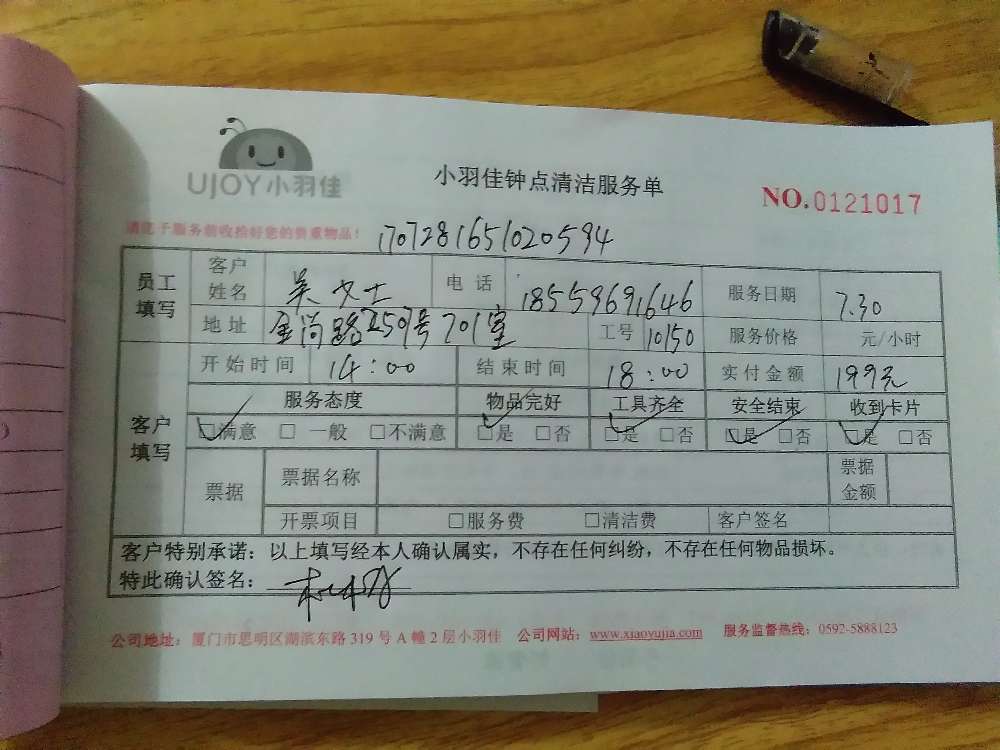 UJOY小羽佳
小羽佳钟点清洁服务单
NO.0121017
请您于服务前收拾好您的贵重物品！
1707281651020594
员工填写 客户姓名 吴女士 电话 18559691646 服务日期 7.30
地址 金尚路259号701室 工号 10150 服务价格 元/小时
开始时间 14:00 结束时间 18:00 实付金额 199元
客户填写 服务态度 物品完好 工具齐全 安全结束 收到卡片
☑满意 □一般 □不满意 ☑是 □否 ☑是 □否 ☑是 □否 ☑是 □否
票据 票据名称 票据金额
开票项目 □服务费 □清洁费 客户签名
客户特别承诺：以上填写经本人确认属实，不存在任何纠纷，不存在任何物品损坏。
特此确认签名：
公司地址：厦门市思明区湖滨东路319号A幢2层小羽佳 公司网站：www.xiaoyujia.com 服务监督热线：0592-5888123